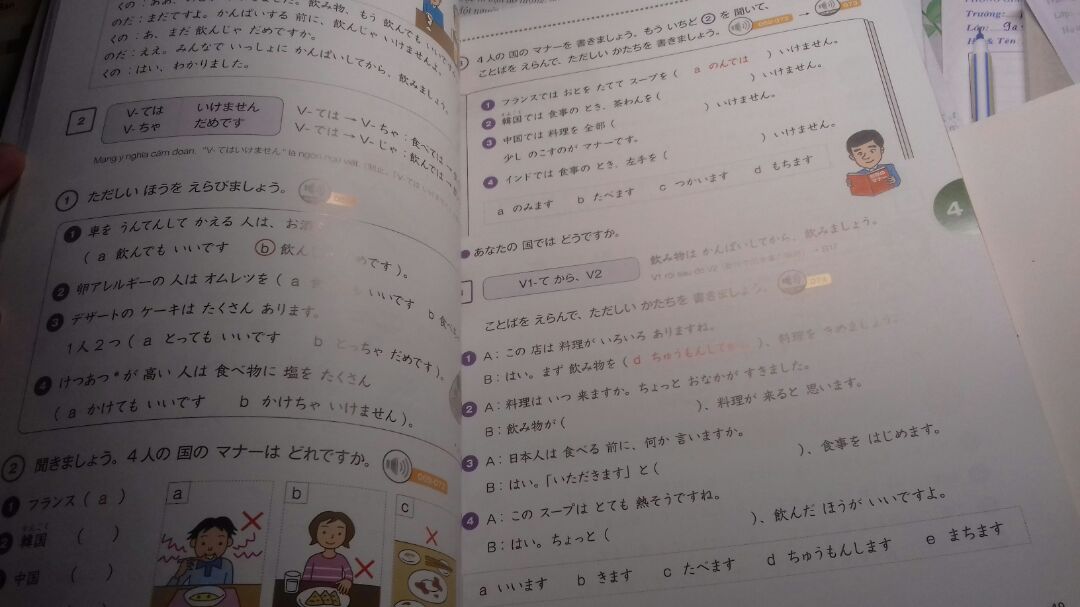 くの：ああ、
飲み物、もう 飲んでも いい
のだ：まだですよ。かんぱいする 前に、飲んじゃ いけませんよ。
くの：あ、まだ 飲んじゃ だめですか。
のだ：ええ。みんなで いっしょに かんぱいしてから、飲みましょう。
くの：はい、わかりました。
2
V-ては いけません
V-ちゃ だめです
V-ては → V-ちゃ：食べては
V-では → V-じゃ：飲んでは
Mang ý nghĩa cấm đoán. "V-てはいけません" là ngôn ngữ viết.
① ただしい ほうを えらびましょう。
❶ 車を うんてんして かえる 人は、お
( a 飲んでも いいです b 飲ん です )。
❷ 卵アレルギーの 人は オムレツを ( a いいです b 食べ
❸ デザートの ケーキは たくさん あります。
1人 2つ ( a とっても いいです b とっちゃ だめです )。
❹ けつあつ*が 高い 人は 食べ物に 塩を たくさん
( a かけても いいです b かけちゃ いけません )。
② 聞きましょう。4人の 国の マナーは どれですか。
069-072
❶ フランス ( a )
❷ 韓国 ( )
❸ 中国 ( )
a
b
c
4人の 国の マナーを 書きましょう。もう いちど ② を 聞いて、
ことばを えらんで、ただしい かたちを 書きましょう。
069-072 → 073
❶ フランスでは おとを たてて スープを ( a のんでは ) いけません。
❷ 韓国では 食事の とき、茶わんを ( ) いけません。
❸ 中国では 料理を 全部 ( ) いけません。
少し のこすのが マナーです。
❹ インドでは 食事の とき、左手を ( ) いけません。
a のみます b たべます c つかいます d もちます
4
あなたの 国では どうですか。
V1-て から、V2
飲み物は かんぱいしてから、飲みましょう。
ことばを えらんで、ただしい かたちを 書きましょう。
❶ A：この 店は 料理が いろいろ ありますね。
B：はい。まず 飲み物を ( d ちゅうもんして )、料理を きめましょう。
❷ A：料理は いつ 来ますか。ちょっと おなかが すきました。
B：飲み物が ( )、料理が 来ると 思います。
❸ A：日本人は 食べる 前に、何か 言いますか。
B：はい。「いただきます」と ( )、食事を はじめます。
❹ A：この スープは とても 熱そうですね。
B：はい。ちょっと ( )、飲んだ ほうが いいですよ。
a いいます b きます c たべます d ちゅうもんします e まちます
Trường:
Lớp: 9a
Họ & Tên